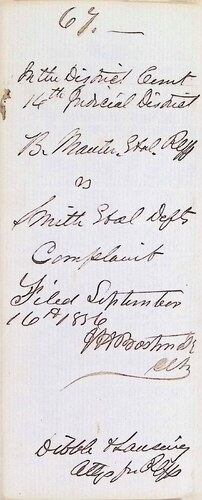 67. —
In the District Court
16th Judicial District
B. Et al. Plffs
vs
Smith Et al Defts
Complaint
Filed September
16th 1856
Clk
Dibble & Lansing
Attys for Plffs